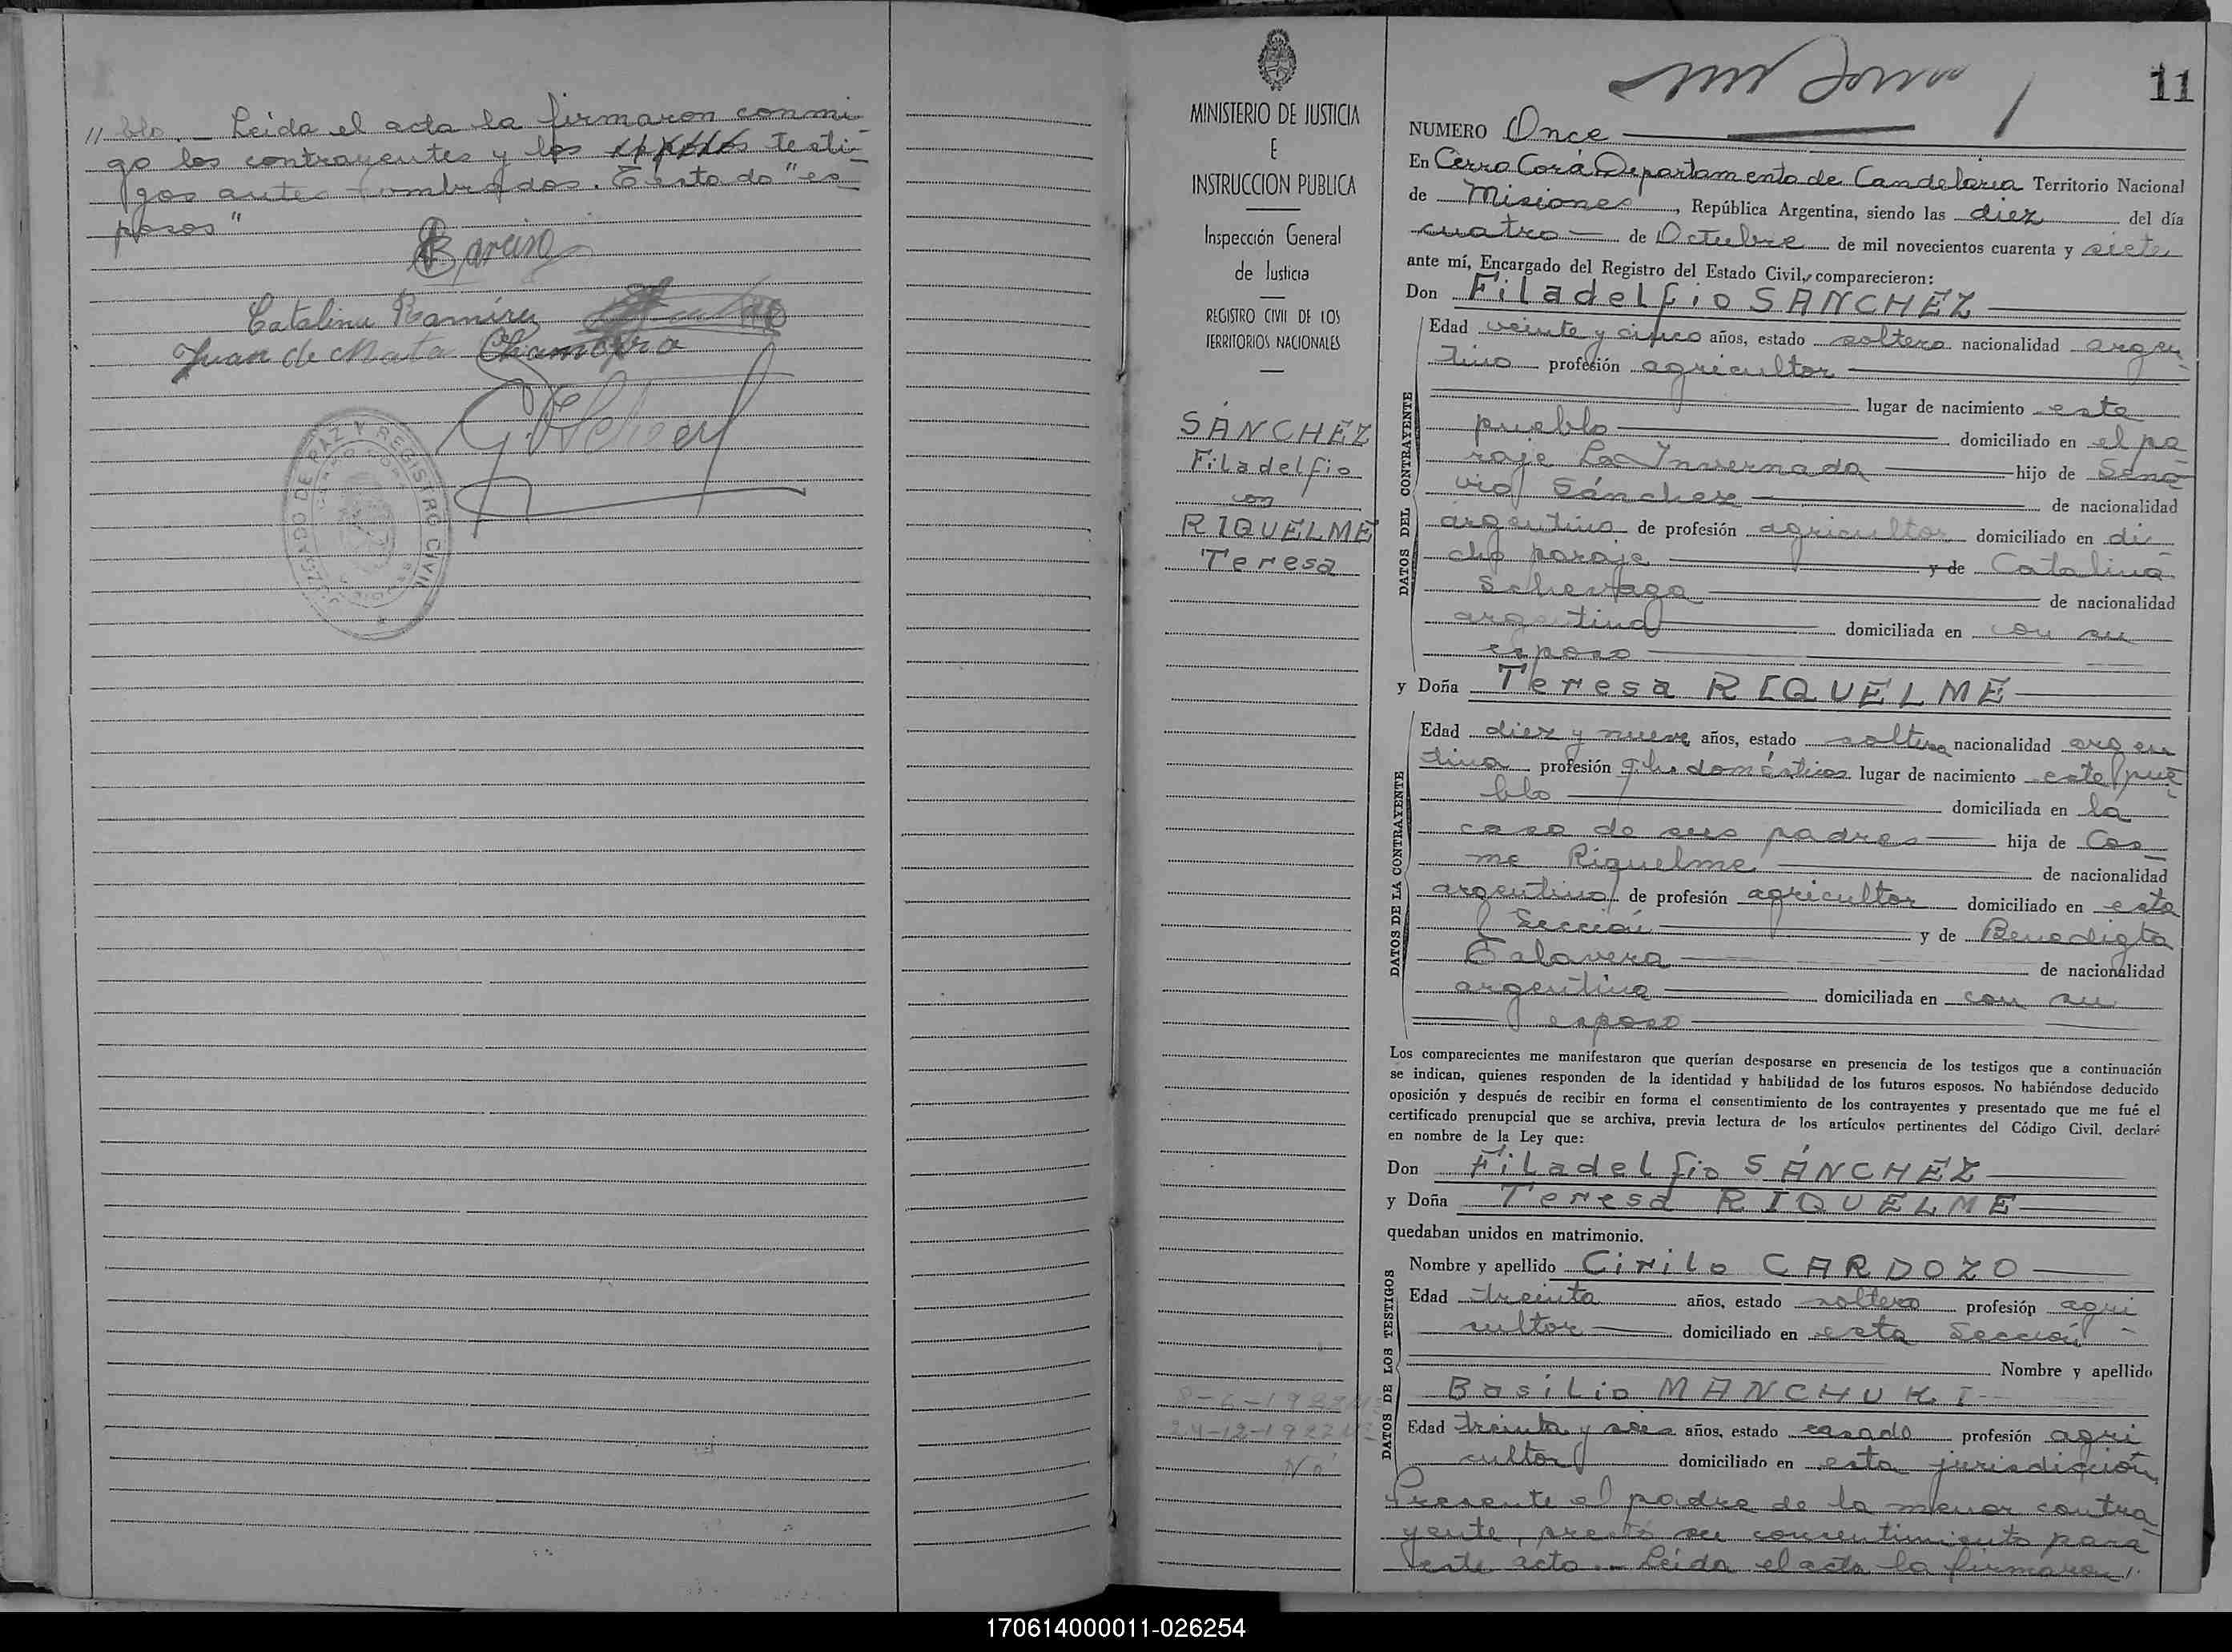 // blo. — Leida el acta la firmaron conmi-
go los contrayentes y los testi-
gos antes nombrados. Testado "es-
posos"
Catalina Ramírez
Juan de Mata Chamorro
JUZGADO DE PAZ Y REGISTRO CIVIL
MINISTERIO DE JUSTICIA
E
INSTRUCCION PUBLICA
Inspección General
de Justicia
REGISTRO CIVIL DE LOS
TERRITORIOS NACIONALES
SÁNCHEZ
Filadelfio
con
RIQUELME
Teresa
8-6-1922
24-12-1922
No
11
NUMERO Once
En Cerro Corá Departamento de Candelaria Territorio Nacional
de Misiones, República Argentina, siendo las diez del día
cuatro de Octubre de mil novecientos cuarenta y siete
ante mí, Encargado del Registro del Estado Civil, comparecieron:
Don Filadelfio SANCHEZ
DATOS DEL CONTRAYENTE
Edad veinte y cinco años, estado soltero nacionalidad argen-
tino profesión agricultor
lugar de nacimiento este
pueblo domiciliado en el pa
raje La Invernada hijo de Sena
vio Sánchez de nacionalidad
argentino de profesión agricultor domiciliado en di-
cho paraje y de Catalina
de nacionalidad
argentina domiciliada en con su
esposo
y Doña Teresa RIQUELME
DATOS DE LA CONTRAYENTE
Edad diez y nueve años, estado soltera nacionalidad argen
tina profesión q. hs. domésticos lugar de nacimiento este pue-
blo domiciliada en la
casa de sus padres hija de Cos-
me Riquelme de nacionalidad
argentino de profesión agricultor domiciliado en esta
Sección y de Benedigta
Talavera de nacionalidad
argentina domiciliada en con su
esposo
Los comparecientes me manifestaron que querían desposarse en presencia de los testigos que a continuación
se indican, quienes responden de la identidad y habilidad de los futuros esposos. No habiéndose deducido
oposición y después de recibir en forma el consentimiento de los contrayentes y presentado que me fué el
certificado prenupcial que se archiva, previa lectura de los artículos pertinentes del Código Civil, declaré
en nombre de la Ley que:
Don Filadelfio SÁNCHEZ
y Doña Teresa RIQUELME
quedaban unidos en matrimonio.
DATOS DE LOS TESTIGOS
Nombre y apellido Cirilo CARDOZO
Edad treinta años, estado soltero profesión agri
cultor domiciliado en esta Sección
Nombre y apellido
Basilio MANCHUKI
Edad treinta y seis años, estado casado profesión agri
cultor domiciliado en esta jurisdicción
Presente el padre de la menor contra
yente, prestó su concentimiento para
este acto. — Leida el acta la firmaron //
170614000011-026254